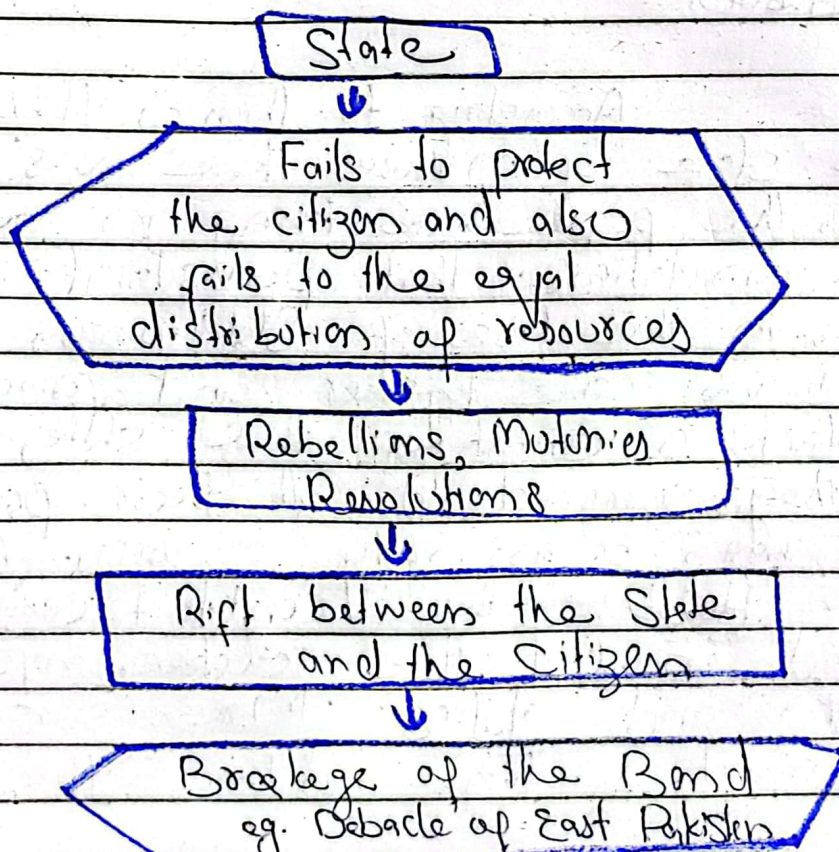 State
Fails to protect
the citizen and also
fails to the eqal
distribution of resources
Rebellions, Mutinies
Revolutions
Rift between the State
and the Citizen
Breakage of the Bond
eg. Debacle of East Pakistan